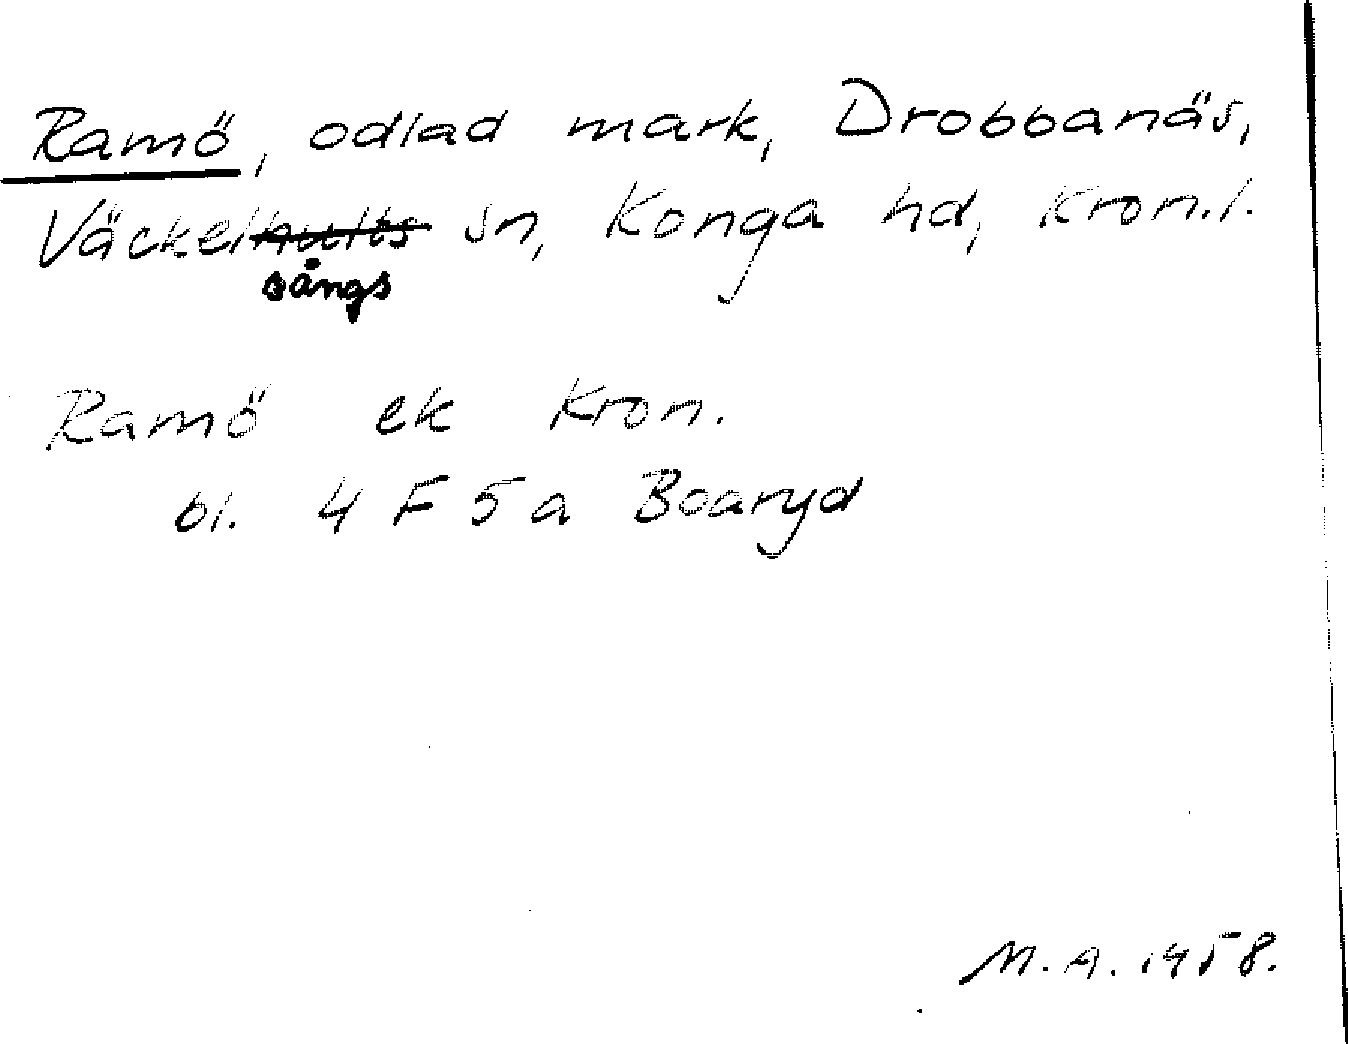 Ramö, odlad mark, Drobbanäs,
Väckelhults sn, Konga hd, Kron.l.
sångs
Ramö ek Kron.
bl. 4 F 5 a Boaryd
M.A. 1958.